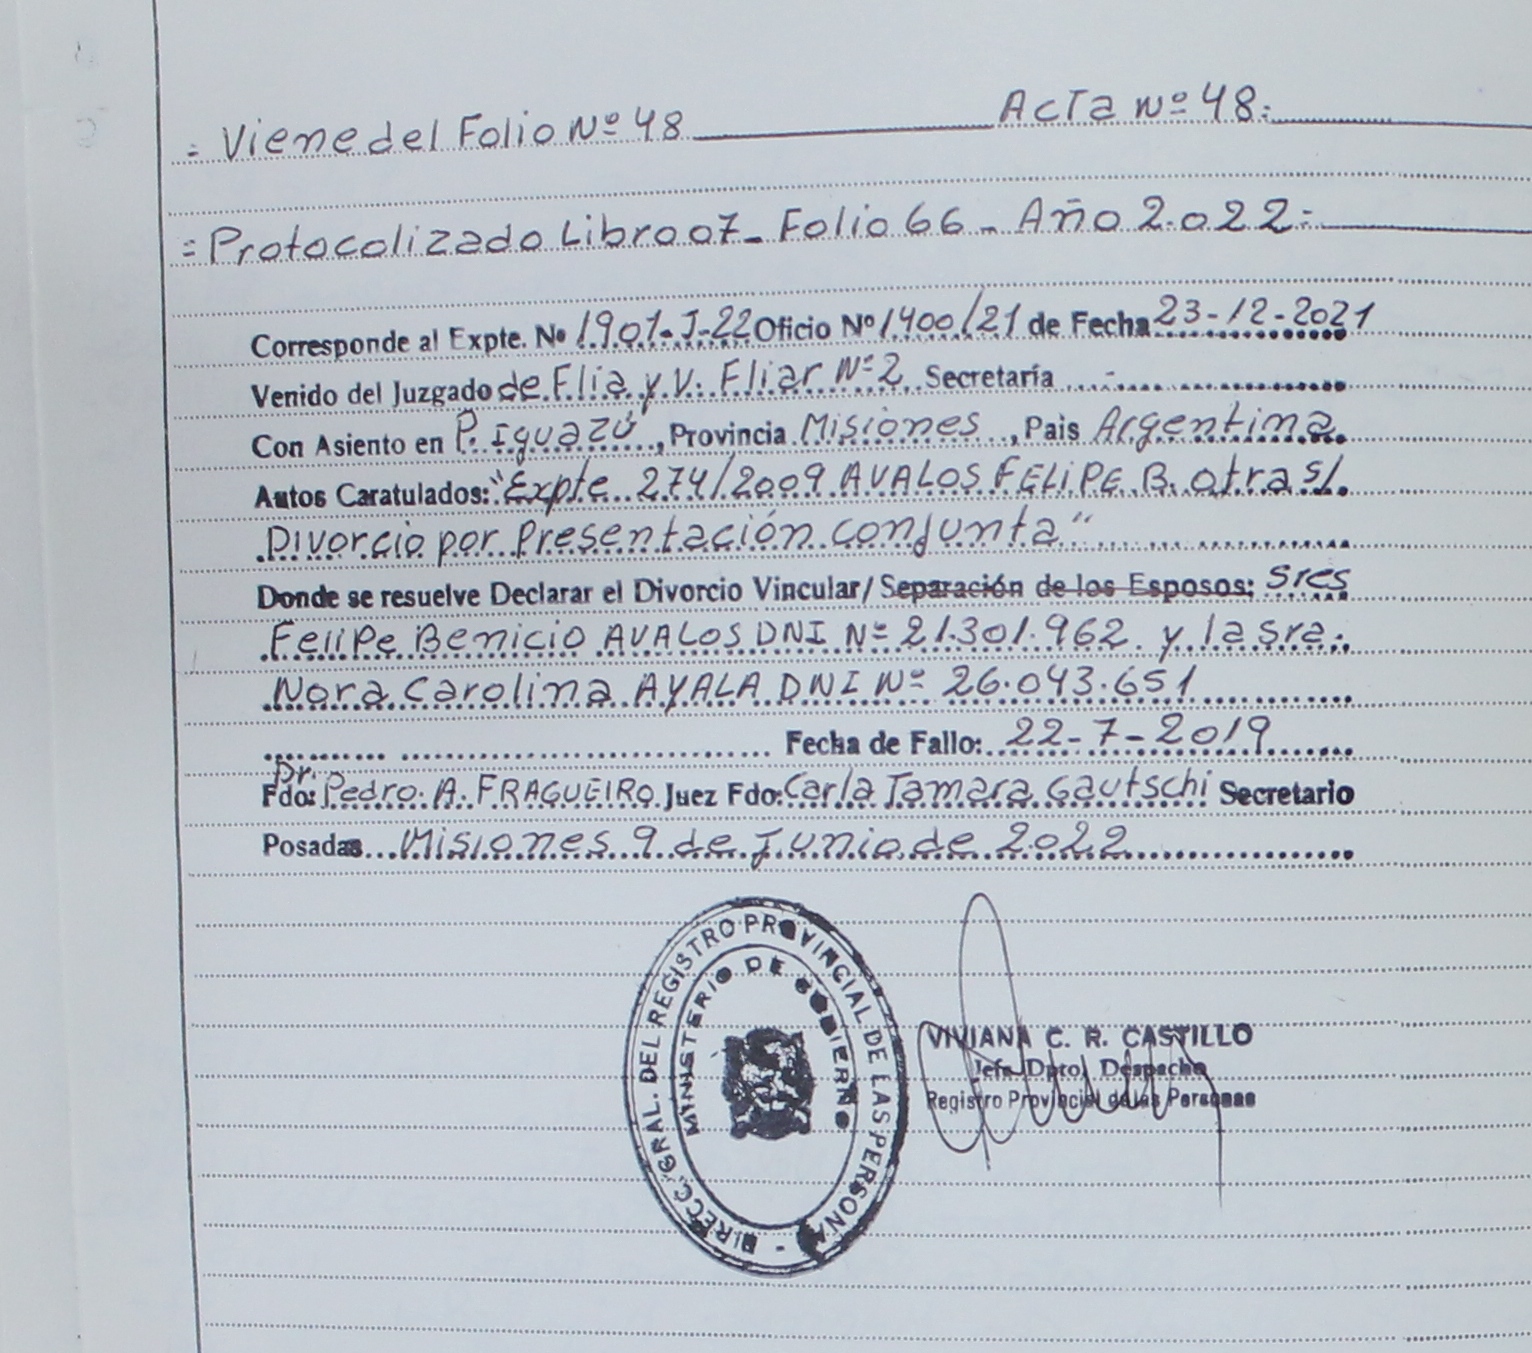 = Viene del Folio Nº 48 Acta Nº 48=
= Protocolizado Libro 07_ Folio 66_ Año 2.022=
Corresponde al Expte. Nº 1901-J-22 Oficio Nº 1400/21 de Fecha 23-12-2021
Venido del Juzgado de Flia y V. Fliar Nº 2 Secretaría -
Con Asiento en P. Iguazú, Provincia Misiones, Pais Argentina
Autos Caratulados: "Expte 274/2009 AVALOS FELIPE B. otra s/.
Divorcio por Presentación conjunta"
Donde se resuelve Declarar el Divorcio Vincular/ Separación de los Esposos: Sres
Felipe Benicio AVALOS DNI Nº 21.301.962 y la sra.
Nora Carolina AYALA DNI Nº 26.043.651
Fecha de Fallo: 22-7-2019
Fdo: Dr. Pedro A. FRAGUEIRO Juez Fdo: Carla Tamara Gautschi Secretario
Posadas Misiones 9 de Junio de 2022
DIRECC. GRAL. DEL REGISTRO PROVINCIAL DE LAS PERSONAS -
MINISTERIO DE GOBIERNO
VIVIANA C. R. CASTILLO
Jefa Dpto. Despacho
Registro Provincial de las Personas